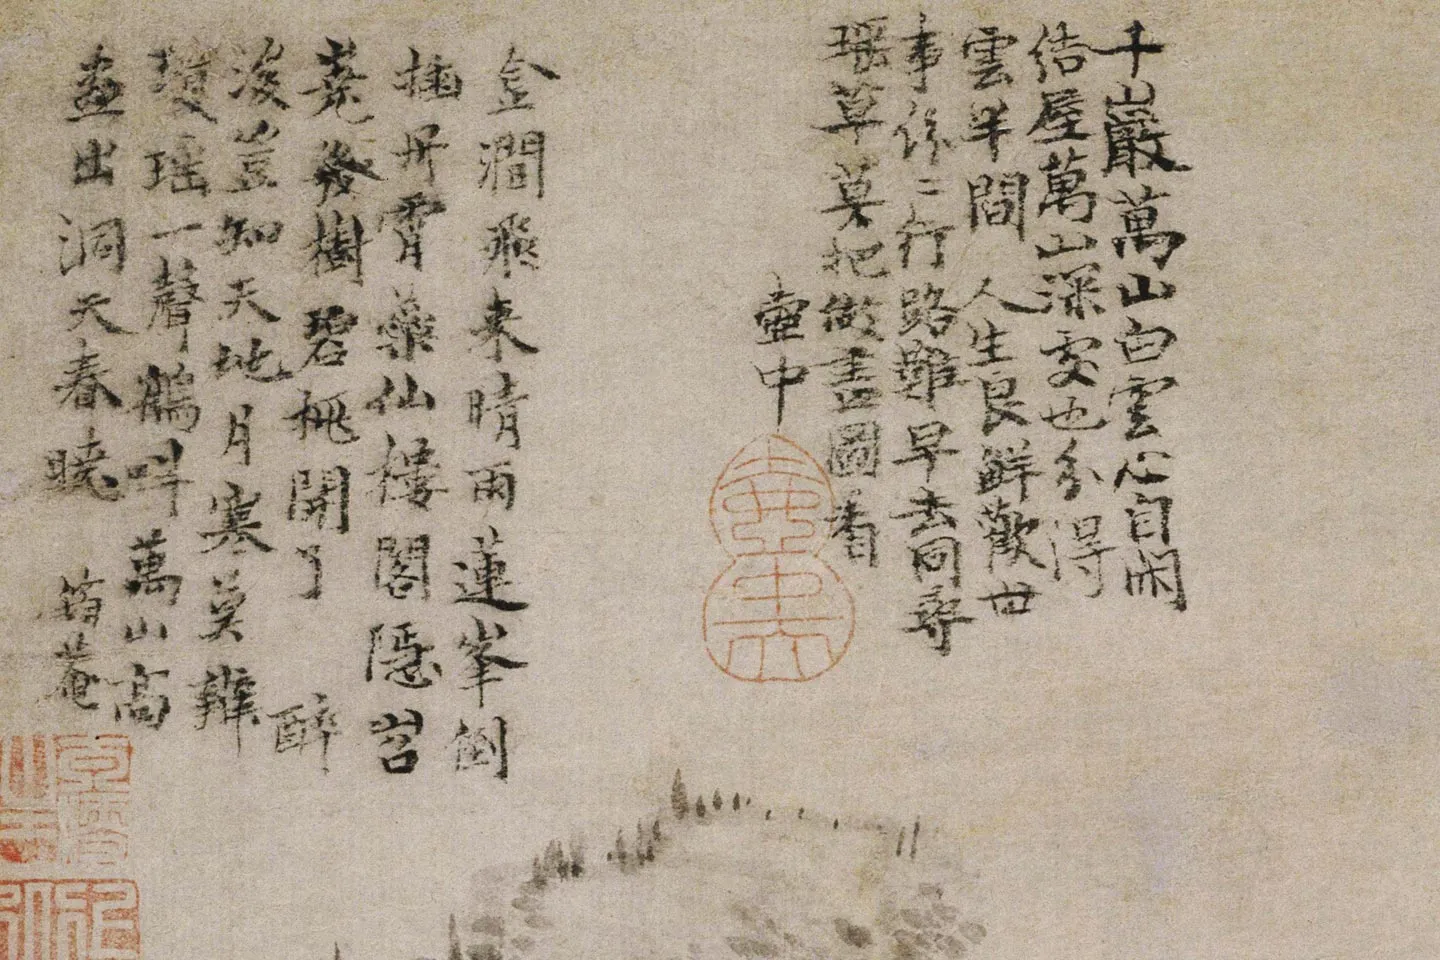 千巖萬山白雲心自閑
结屋萬山深處也分得
雲半間 人生良鮮歡世
事係〻行路難早去同尋
瑶草莫把做畫圖看
壺中
金澗飛来晴雨蓮峯倒
插丹霄蘂仙樓閣隐岧
嶤幾樹碧桃開了 醉
後豈知天地月寒莫辨
瓊瑶一聲鶴呌萬山高
畫出洞天春曉 菴